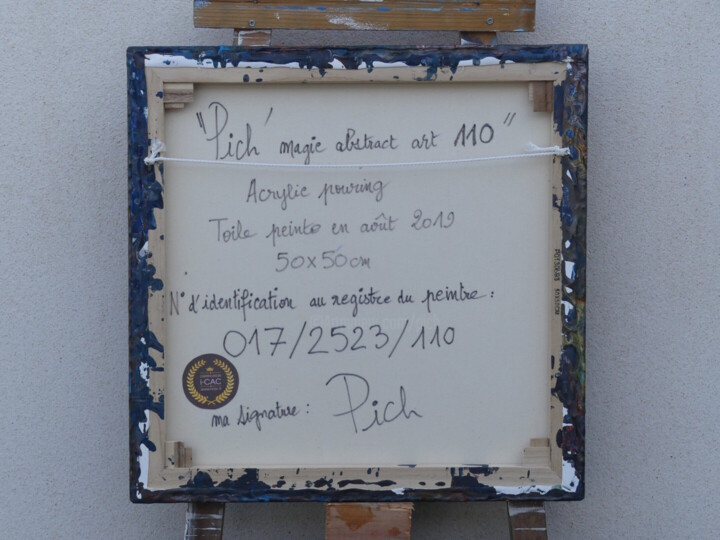 "Pich' magic abstract art 110"
Acrylic pouring
Toile peinte en août 2019
50x50cm
N° d'identification au registre du peintre :
017/2523/110
i-CAC
ma signature : Pich